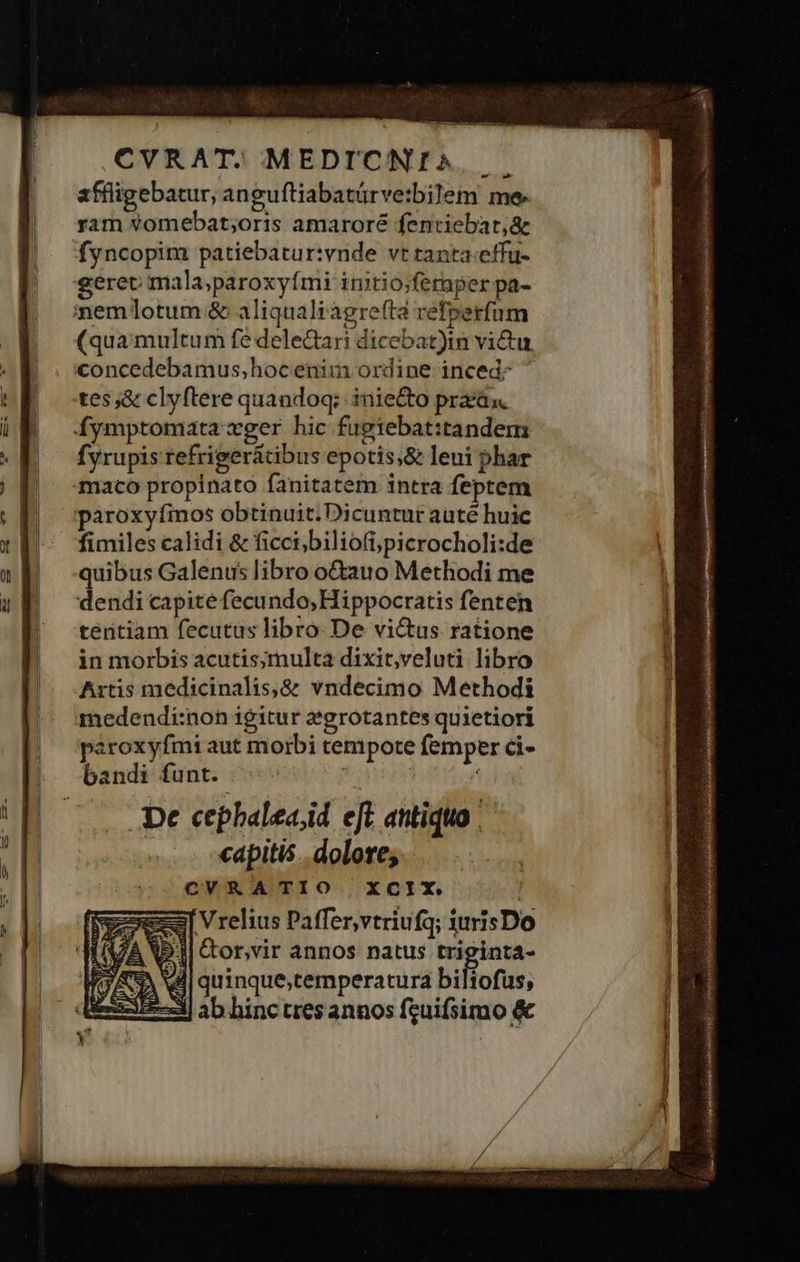 CVRAT. MEDICNIA
affligebatur, anguſtiabatúr ve: bilem me-
ram vomebat, oris amaroré ſentiebat, &
ſyncopim patiebatur: vnde vt tanta effu-
geret mala, paroxyſmi initio, ſemper pa-
nem lotum & aliquali agreſtá reſperſum
(qua multum ſe delectari dicebat) in victu
concedebamus, hoc enim ordine inced-
tes, & clyſtere quandoq; iniecto
ſymptomata æger hic fugiebat: tandem
ſyrupis refrigerátibus epotis, & leui phar
maco propinato ſanitatem intra ſeptem
paroxyſmos obtinuit. Dicuntur auté huic
ſimiles calidi & ſicci, bilioſi, picrocholi: de
quibus Galenus libro octauo Methodi me
dendi capite ſecundo, Hippocratis ſenten
tentiam ſecutus libro De victus ratione
in morbis acutis, multa dixit, veluti libro
Artis medicinalis, & vndecimo Methodi
medendi: non igitur ægrotantes quietiori
paroxyſmi aut morbi tempote ſemper ci-
bandi ſunt.
De cephalea, id eſt antiquo
capitis dolore,
CVRATIO XCIX.
Vrelius Paſſer, vtriuſq; iuris Do
ctor, vir annos natus triginta-
quinque, temperatura bilioſus,
ab hinc tres annos ſęuiſsimo &